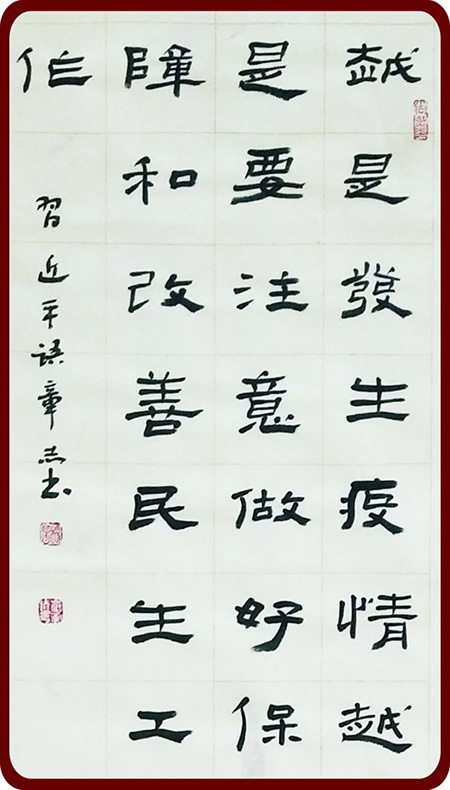 越是發生疫情越
是要注意做好保
障和改善民生工
作
習近平語章志书